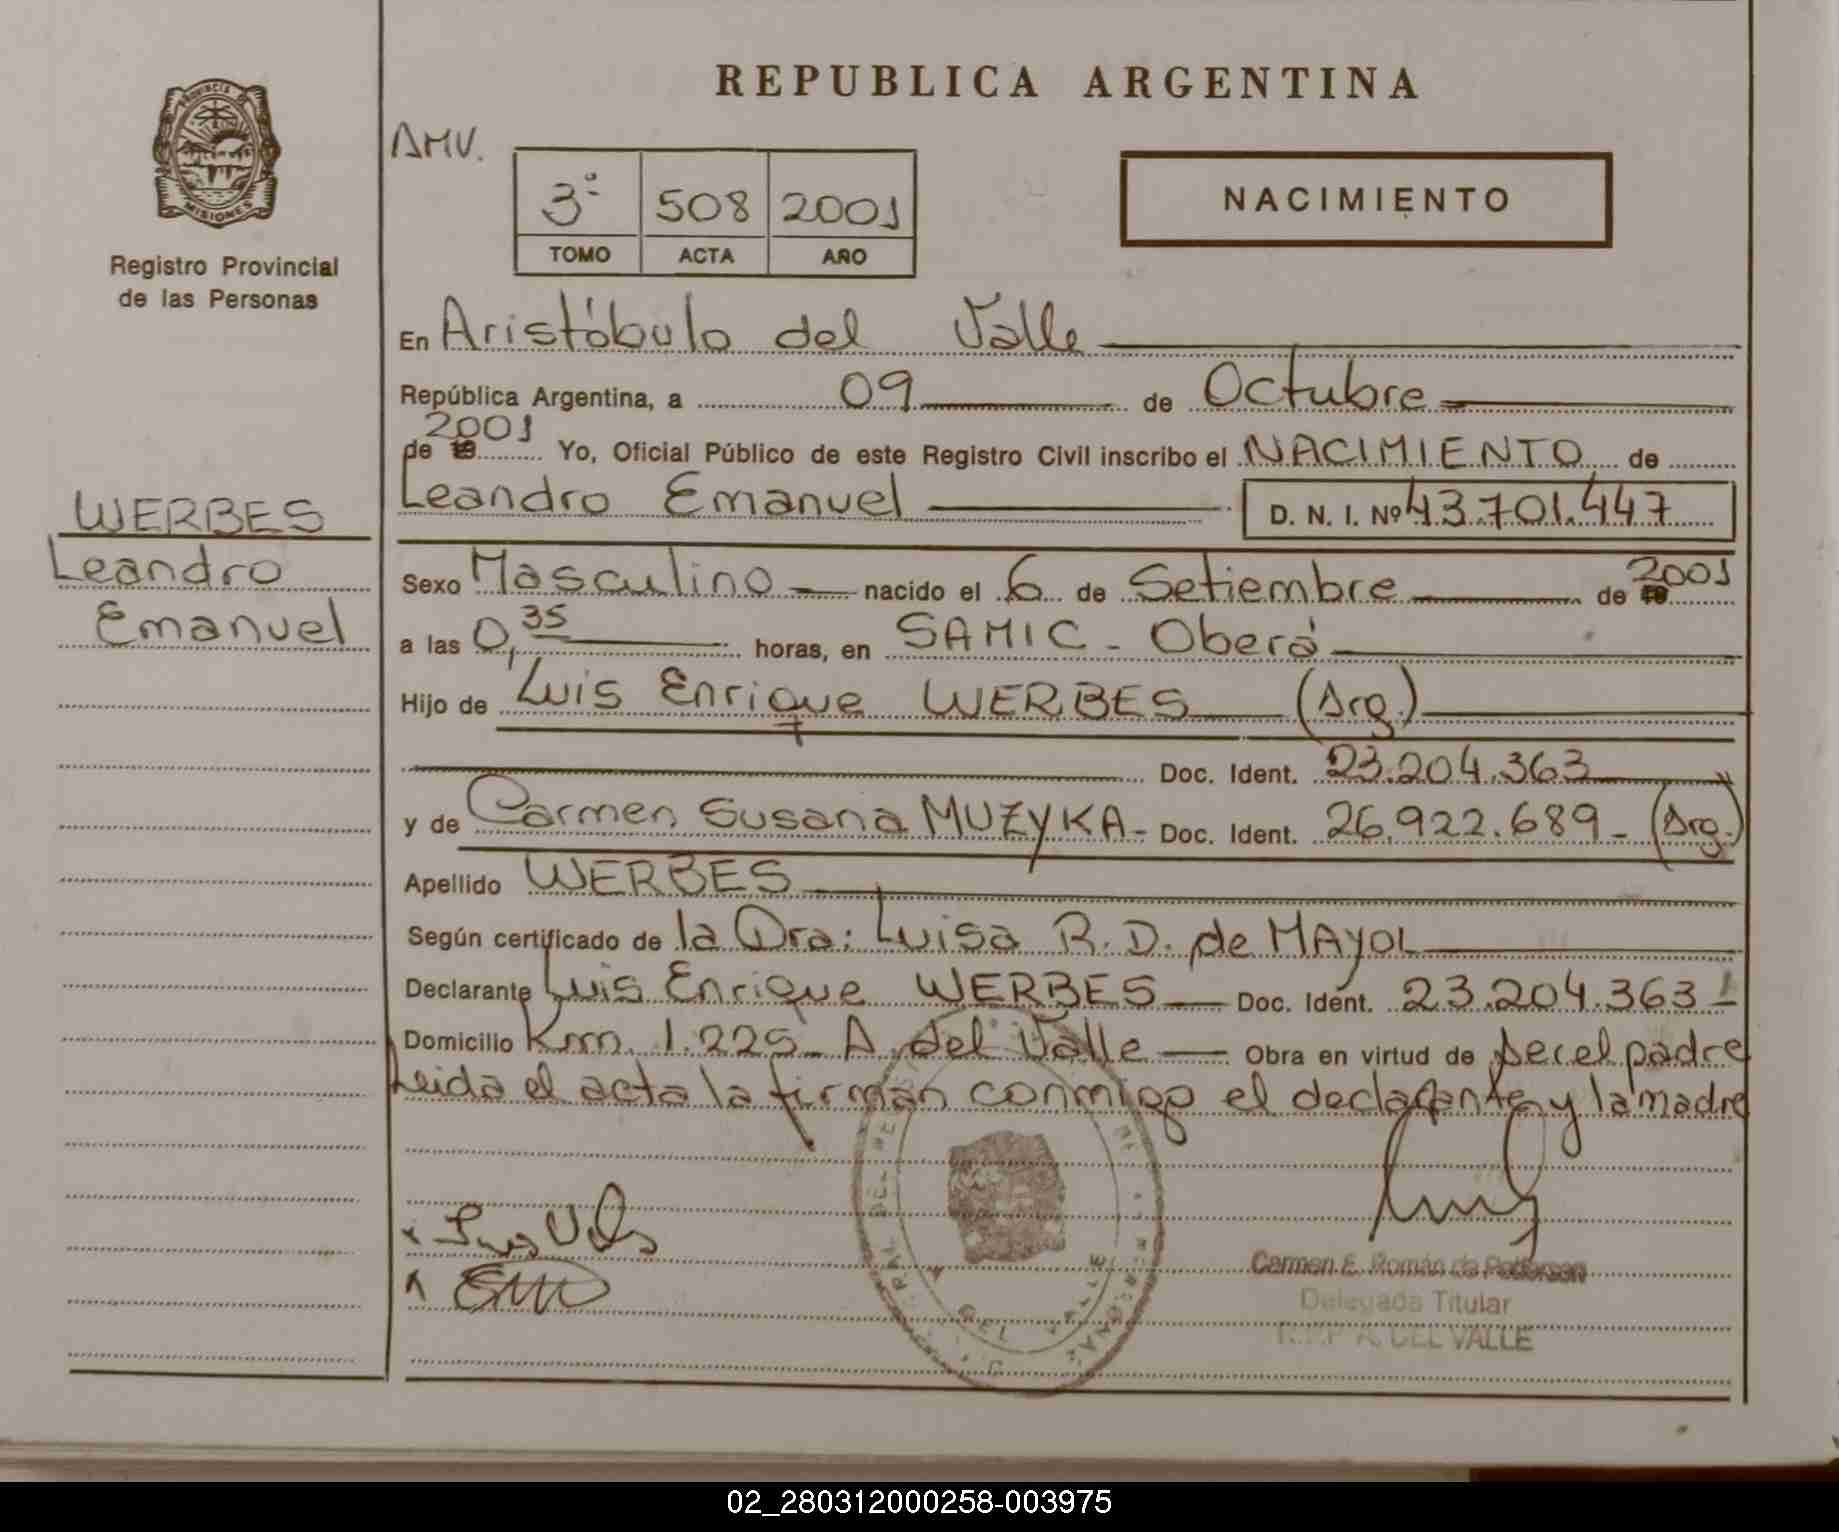 REPUBLICA ARGENTINA
PROVINCIA DE
MISIONES
Registro Provincial
de las Personas
AMV.
3º 508 2001
TOMO ACTA AÑO
NACIMIENTO
En Aristóbulo del Valle
República Argentina, a 09 de Octubre
de 19 2001 Yo, Oficial Público de este Registro Civil inscribo el NACIMIENTO de
Leandro Emanuel D. N. I. Nº 43.701.447
WERBES
Leandro
Emanuel
Sexo Masculino nacido el 6 de Setiembre de 19 2001
a las 0,35 horas, en SAMIC - Oberá
Hijo de Luis Enrique WERBES (Arg.)
Doc. Ident. 23.204.363
y de Carmen Susana MUZYKA - Doc. Ident. 26.922.689 - (Arg.)
Apellido WERBES
Según certificado de la Dra: Luisa R. D. de MAYOL
Declarante Luis Enrique WERBES Doc. Ident. 23.204.363 -
Domicilio Km. 1.225 - A. del Valle Obra en virtud de ser el padre
Leida el acta la firman conmigo el declarante y la madre
Carmen E. Román de Pedersen
Delegada Titular
R.P.P A. DEL VALLE
DEL VALLE
02_280312000258-003975